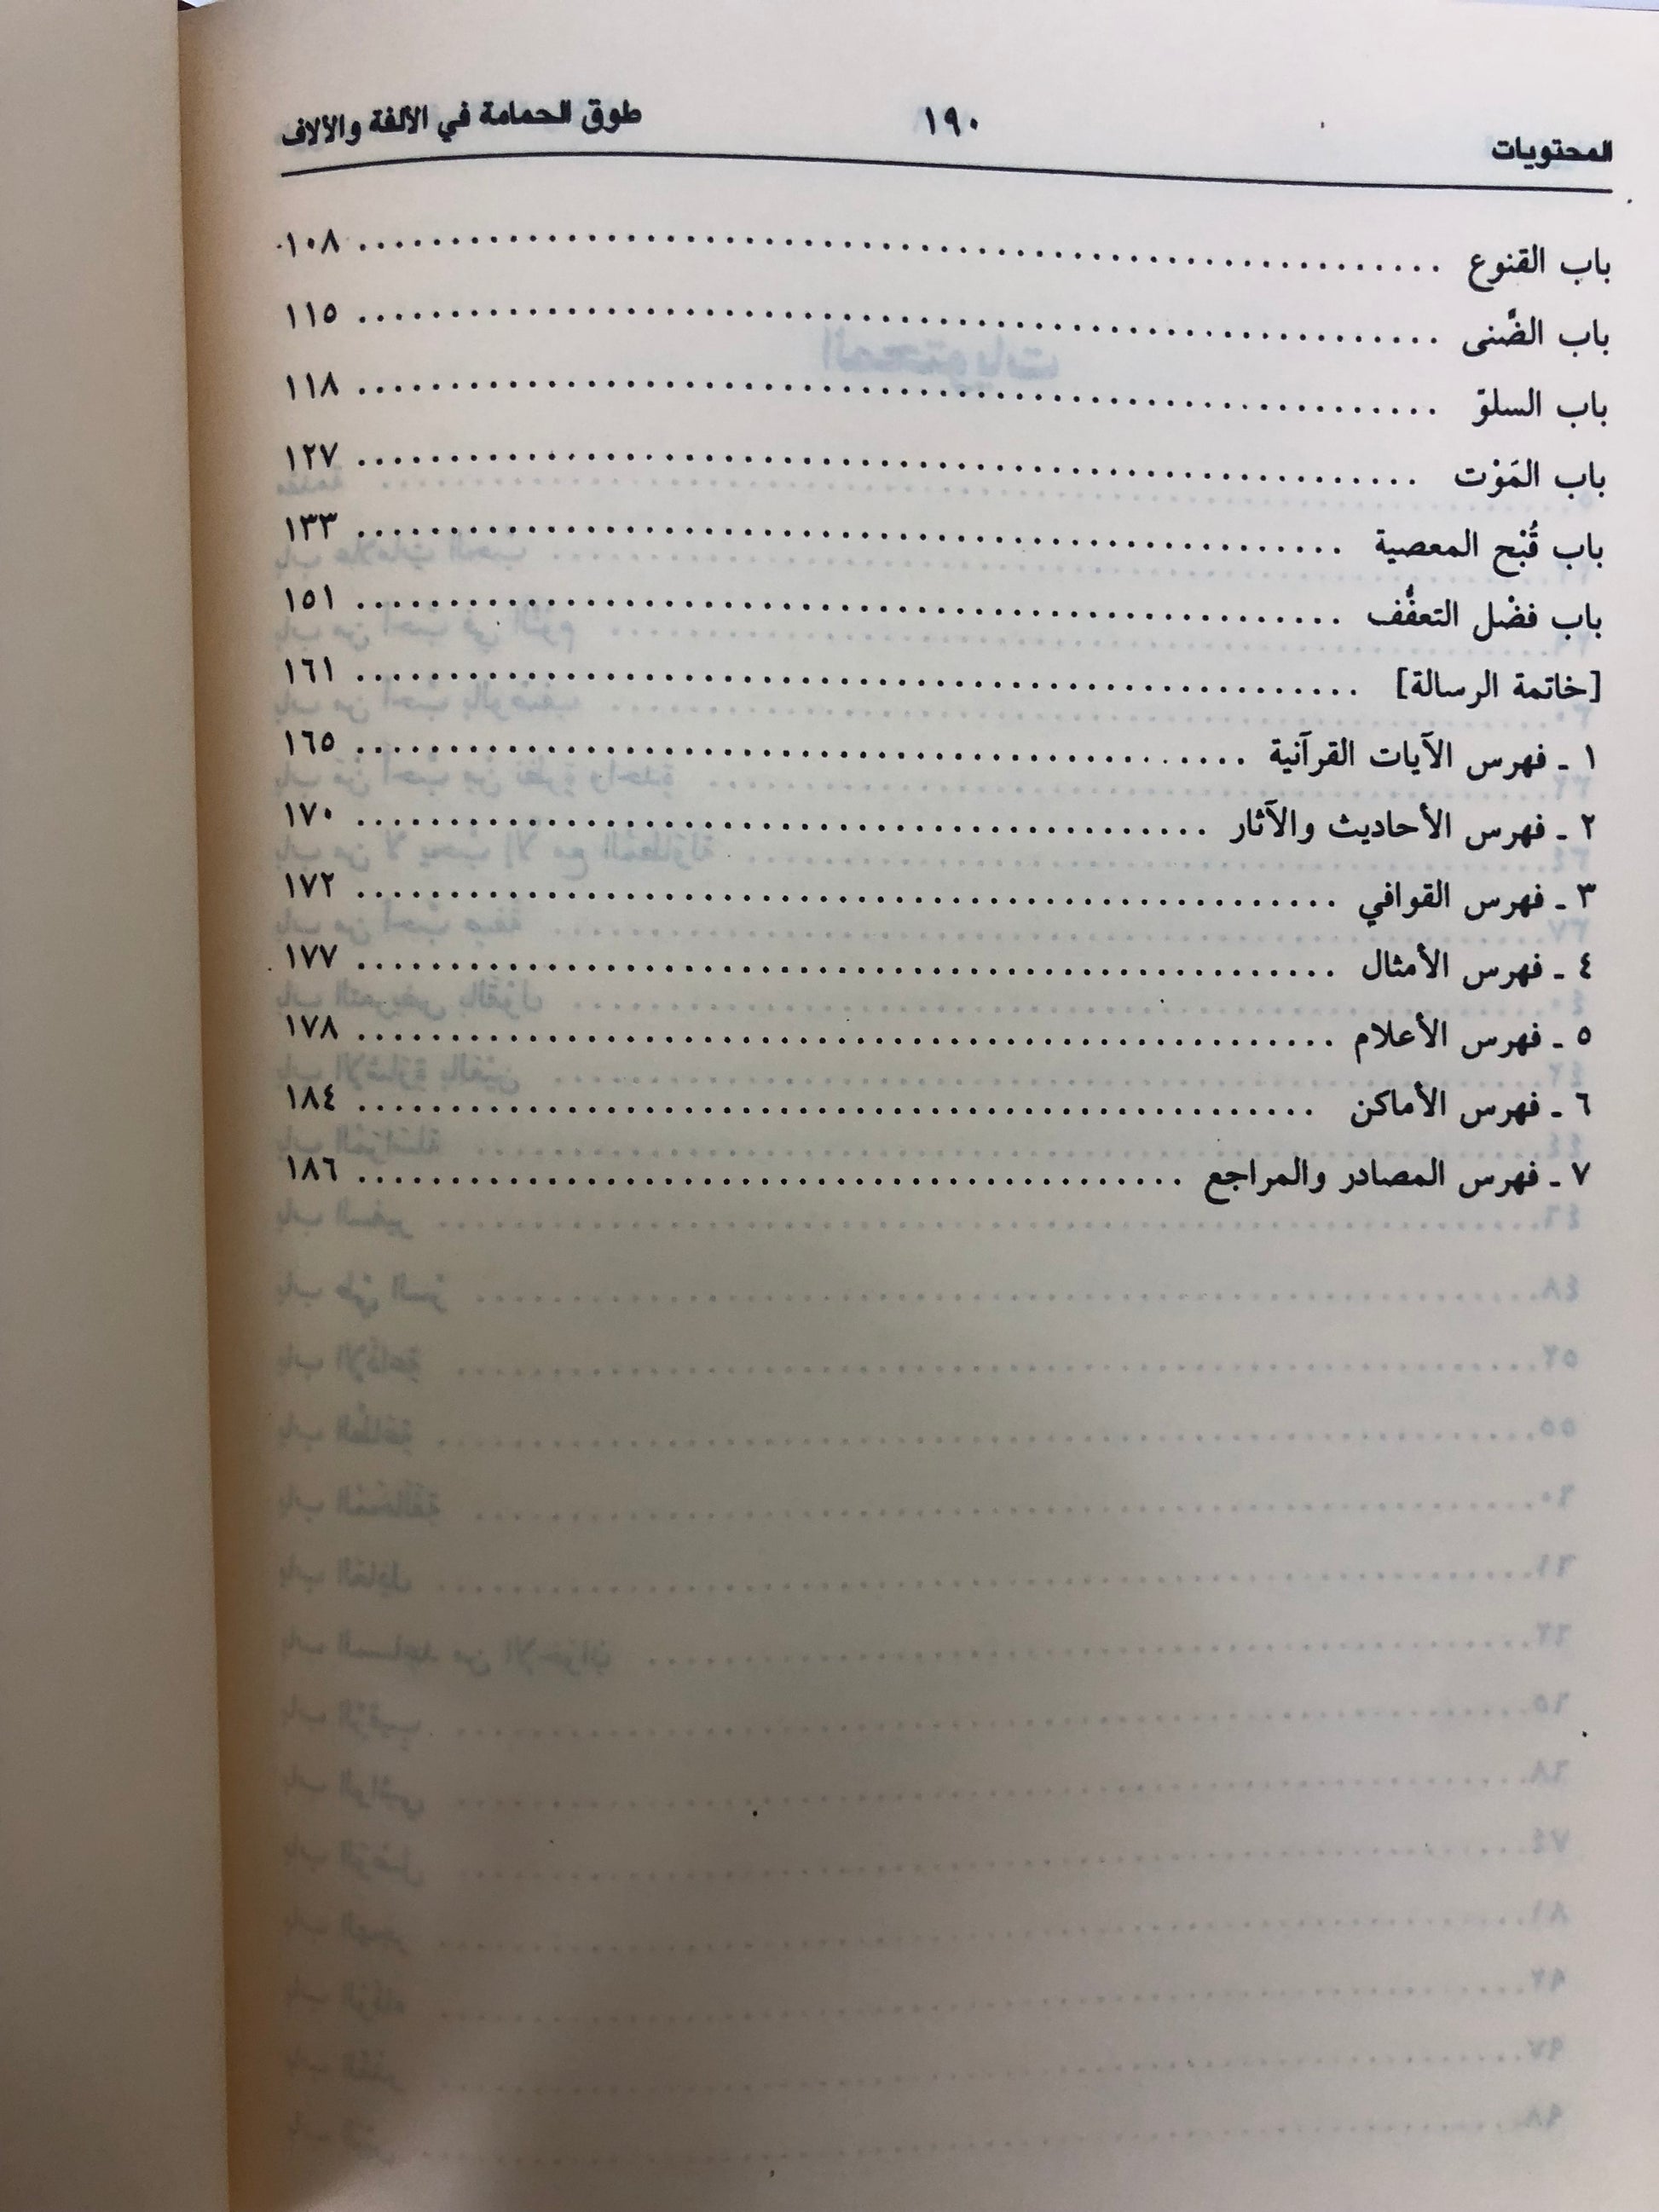 المحتويات ١٩٠ طوق الحمامة في الألفة والألاف
باب القنوع ........ ١٠٨
باب الضَّنى ........ ١١٥
باب السلوّ ........ ١١٨
باب المَوْت ........ ١٢٧
باب قُبْح المعصية ........ ١٣٣
باب فضْل التعفُّف ........ ١٥١
[خاتمة الرسالة] ........ ١٦١
١ ـ فهرس الآيات القرآنية ........ ١٦٥
٢ ـ فهرس الأحاديث والآثار ........ ١٧٠
٣ ـ فهرس القوافي ........ ١٧٢
٤ ـ فهرس الأمثال ........ ١٧٧
٥ ـ فهرس الأعلام ........ ١٧٨
٦ ـ فهرس الأماكن ........ ١٨٤
٧ ـ فهرس المصادر والمراجع ........ ١٨٦